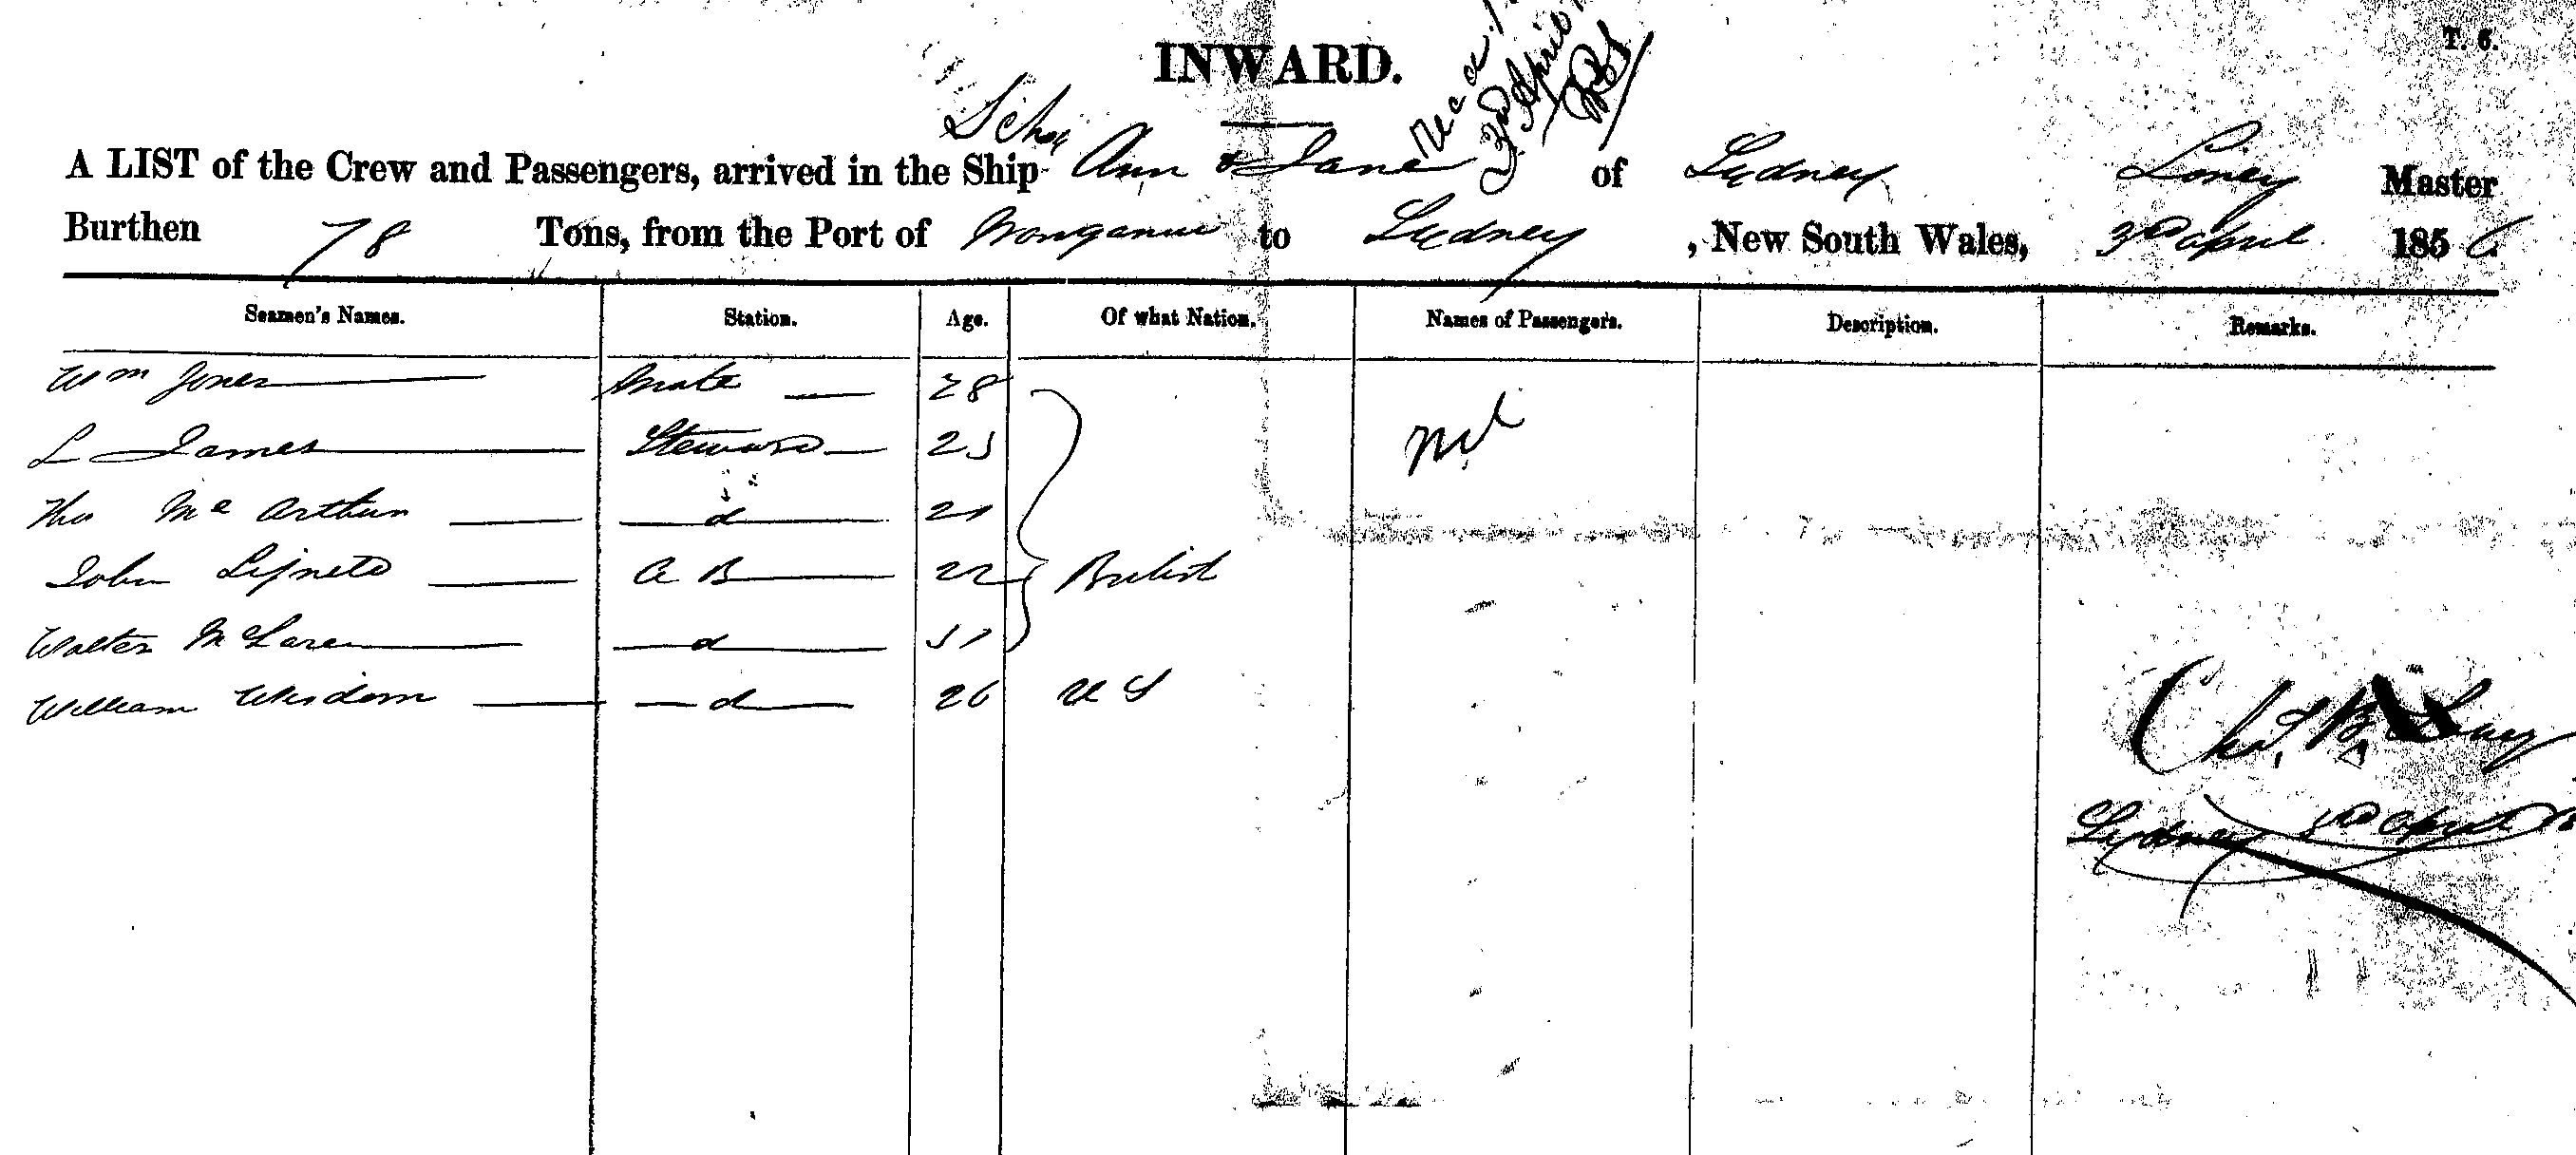 T. 6.
INWARD.
3rd April
Schr
A LIST of the Crew and Passengers, arrived in the Ship Ann & Jane of Sydney Loney Master
Burthen 78 Tons, from the Port of Wonganui to Sydney, New South Wales, 3rd April 1856
Seamen's Names. Station. Age. Of what Nation. Names of Passengers. Description. Remarks.
Wm Jones Mate 28
L James Steward 25 Nil
Thos McArthur d 21
John A B 22 British
Walter McLaren d 51
William Wisdom d 26 U S
Chas. B. Loney
Sydney 3rd April